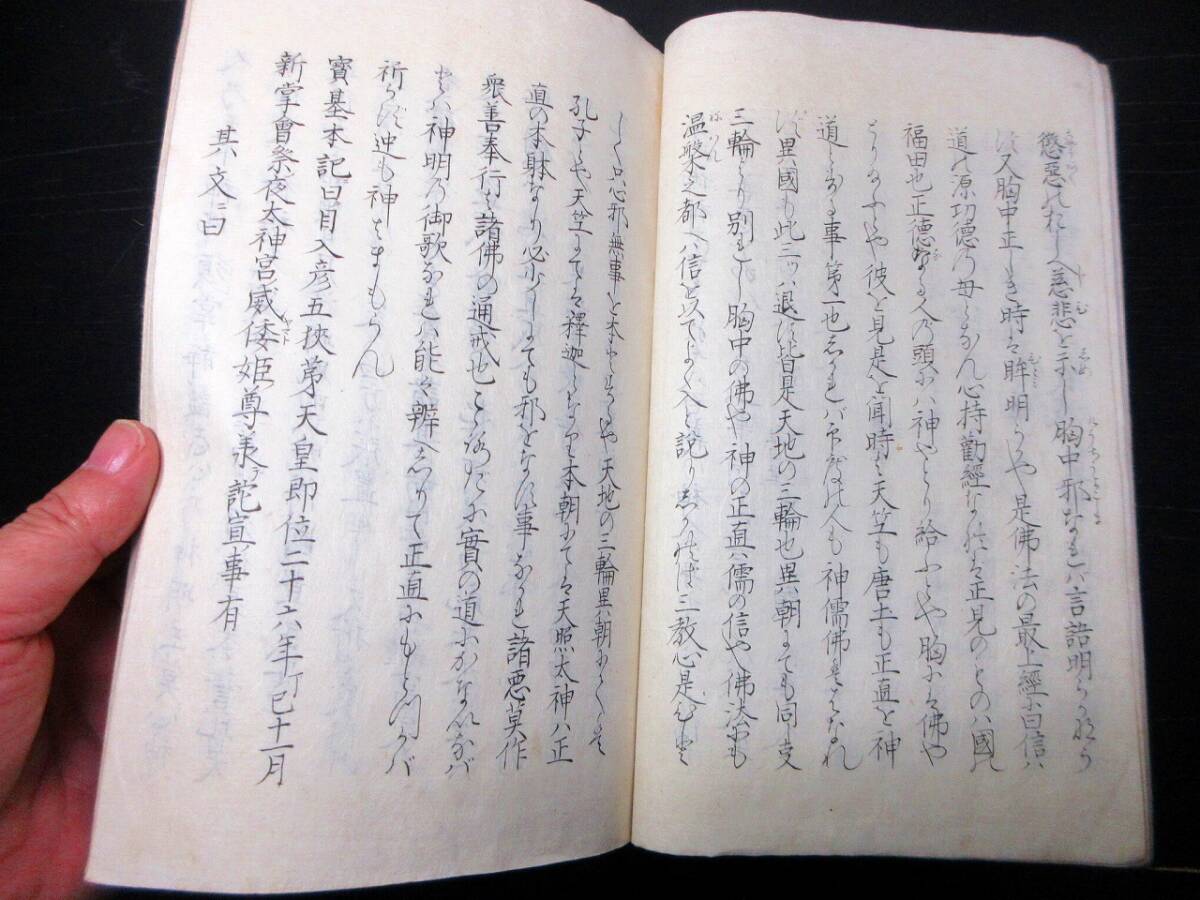 懲惡のおしへ慈悲を示し胸中邪なれハ言語明らかなら
ず又胸中正しき時ハ眸明らかや是佛法の最上經ニ曰信ハ
道の源功徳の母 心持勸經 ハ正見のとのハ國の
福田也正徳なる人の頭ニハ神やとり給ふとや胸にハ佛や
とり 彼を見是を聞時ハ天竺も唐土も正直を神
道とする事第一也しかれバ 人も神儒佛をはなれ
ず異國も此三ッハ退ず皆是天地の三輪也異朝にても同支
三輪より別 し胸中の佛や神の正直ハ儒の信や佛法にも
温槃之都へハ信を以てよく入と説り しかれば三教心是
しく只心邪無事を本とするとや天地の三輪異朝
孔子とや天竺にてハ釋迦となり本朝にてハ天照太神ハ正
直の本躰なり必少しにても邪をなす事なかれ諸悪莫作
衆善奉行ハ諸佛の通戒也 実の道にかなひなバ
神明の御歌なれハ能々辨へしりて正直にもとづかバ
祈らず迚も神はまもらん
寳基本記曰目入彦五狹茅天皇即位二十六年丁巳十一月
新掌會祭夜太神宮威倭姫尊 詑宣事有
其文ニ曰